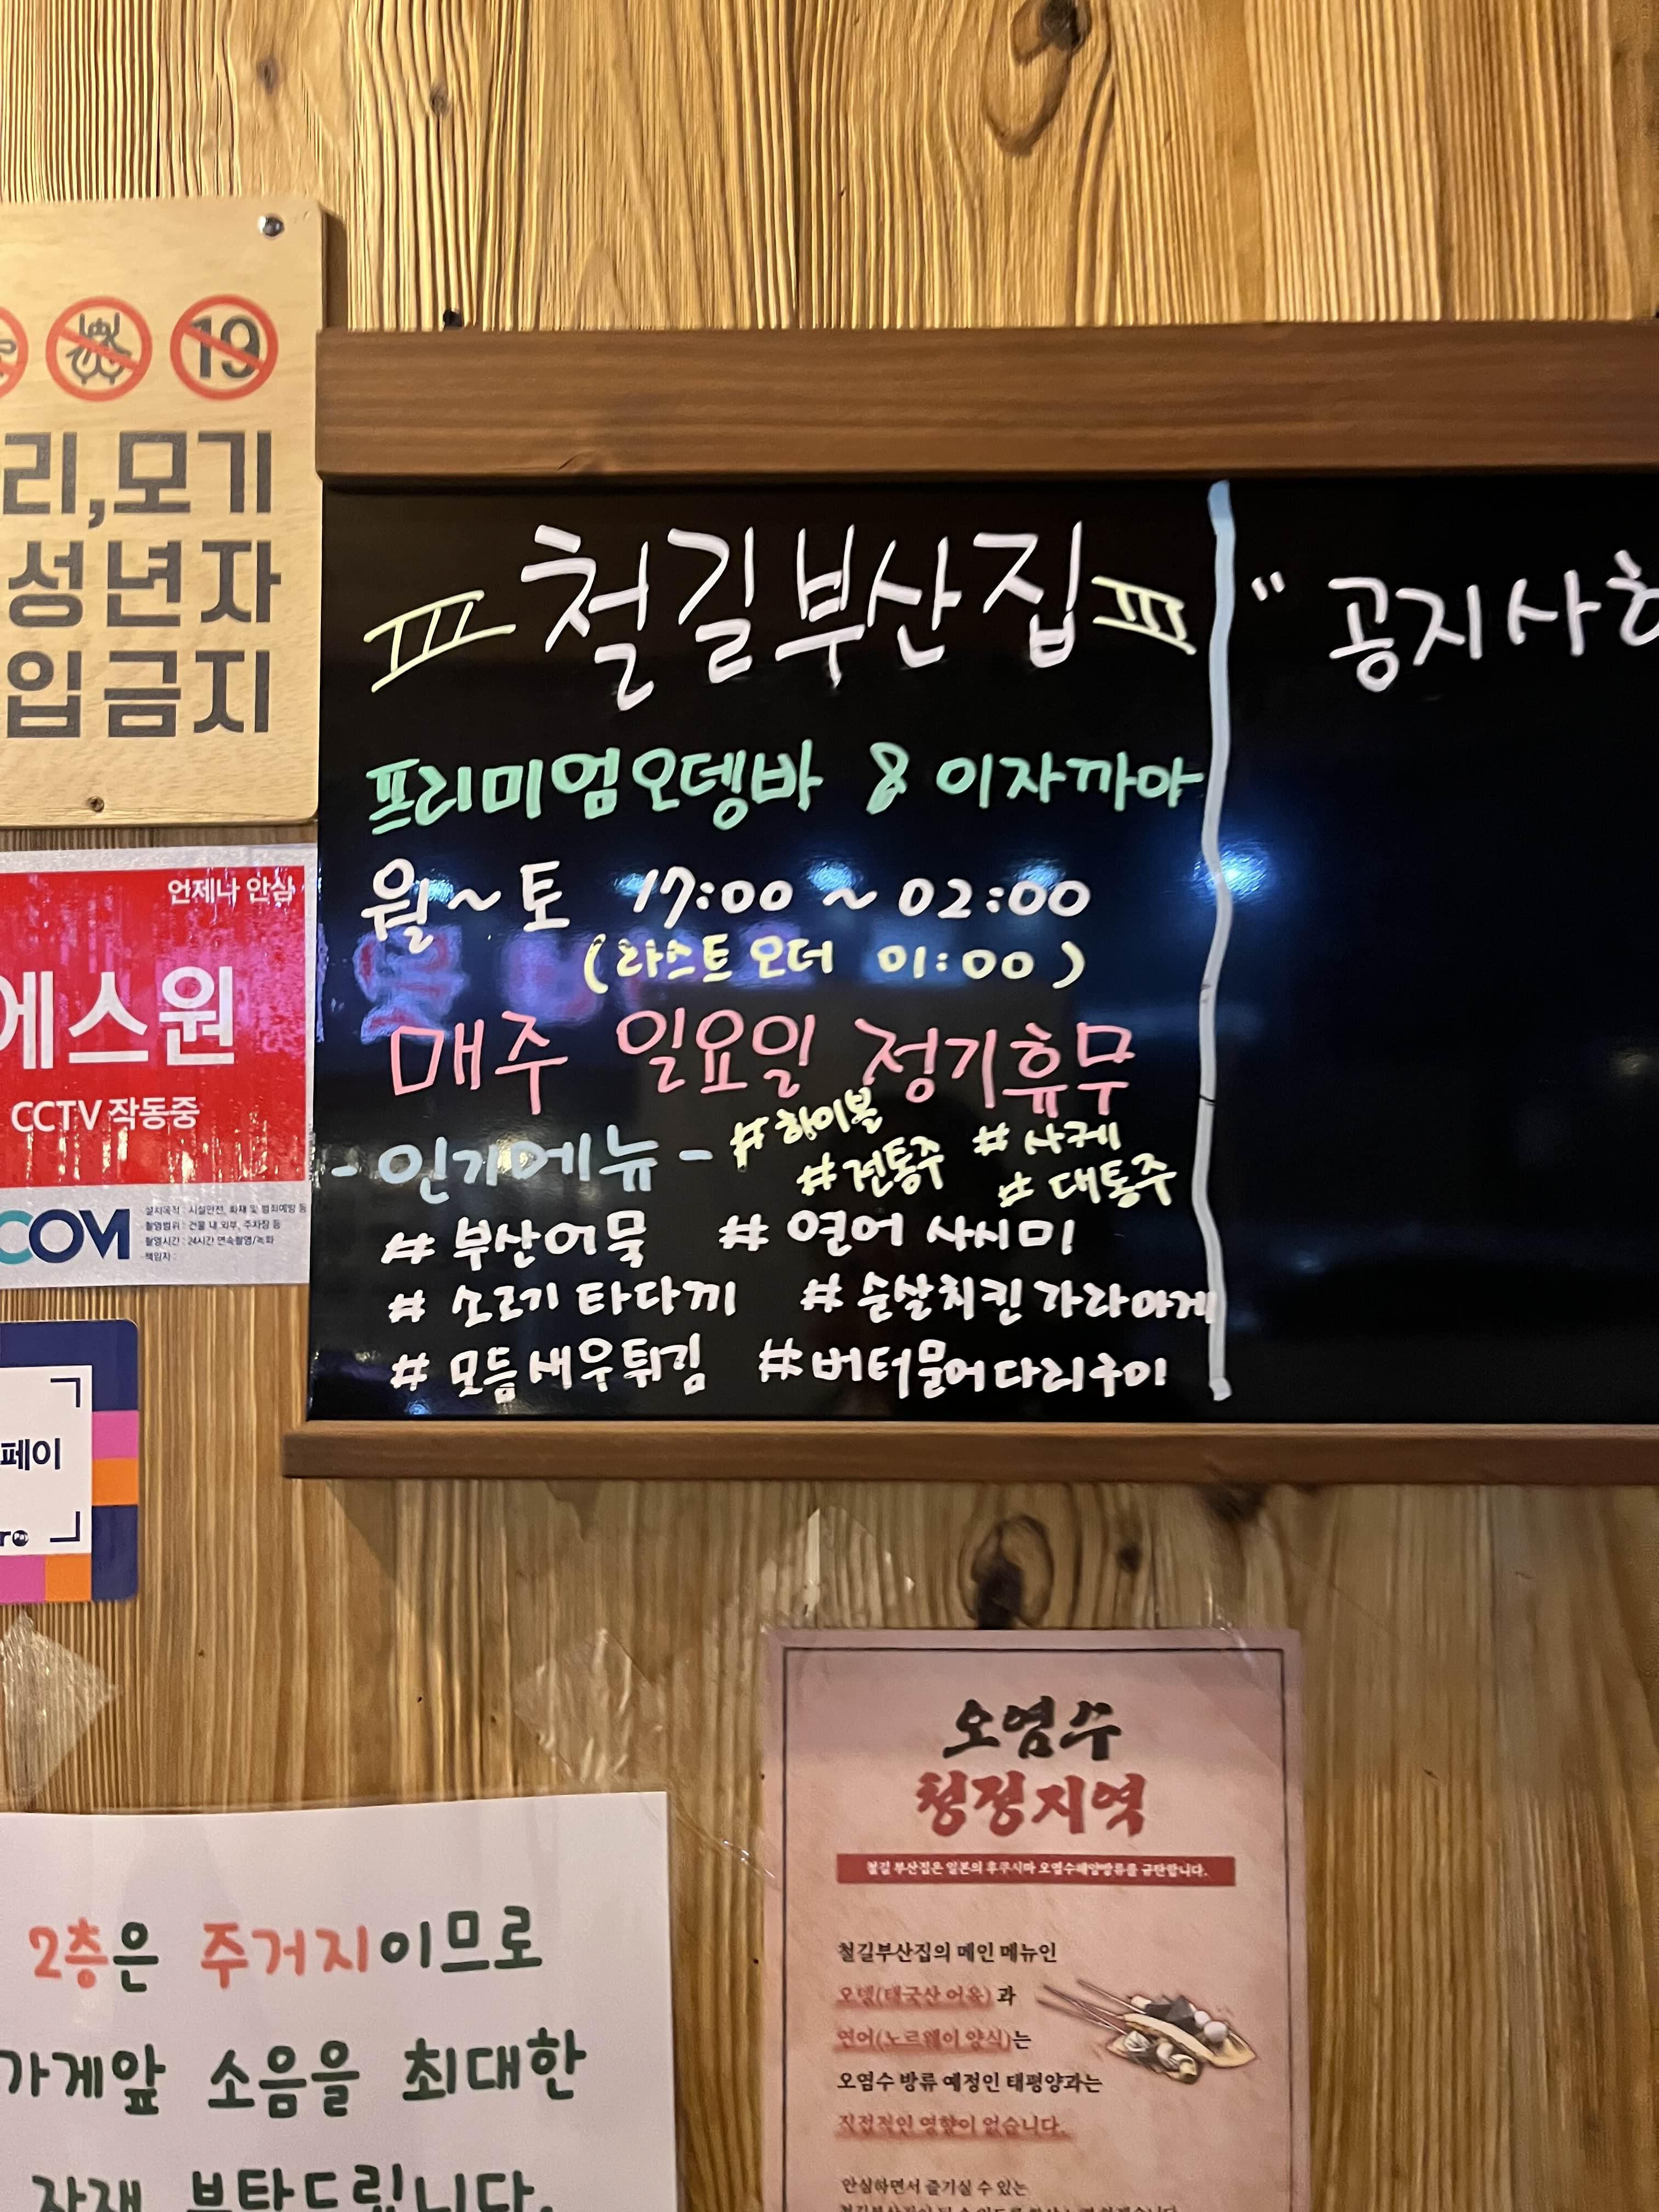 19
리,모기
성년자
입금지
언제나 안심
에스원
CCTV 작동중
COM
설치목적 : 시설안전, 화재 및 범죄예방 등
촬영범위 : 건물 내.외부, 주차장 등
촬영시간 : 24시간 연속촬영/녹화
책임자 :
페이
철길부산집
프리미엄오뎅바 & 이자까야
월~토 17:00 ~ 02:00
(라스트 오더 01:00)
매주 일요일 정기휴무
-인기메뉴-
#하이볼
#전통주 #사케
#대통주
#부산어묵 #연어 사시미
#소고기 타다끼 #순살치킨 가라아게
#모듬새우튀김 #버터문어다리구이
" 공지사
오염수
청정지역
철길 부산집은 일본의 후쿠시마 오염수해양방류를 규탄합니다.
철길부산집의 메인 메뉴인
오뎅(태국산 어육)과
연어(노르웨이 양식)는
오염수 방류 예정인 태평양과는
직접적인 영향이 없습니다.
안심하면서 즐기실 수 있는
2층은 주거지이므로
가게앞 소음을 최대한
자제 부탁드립니다.